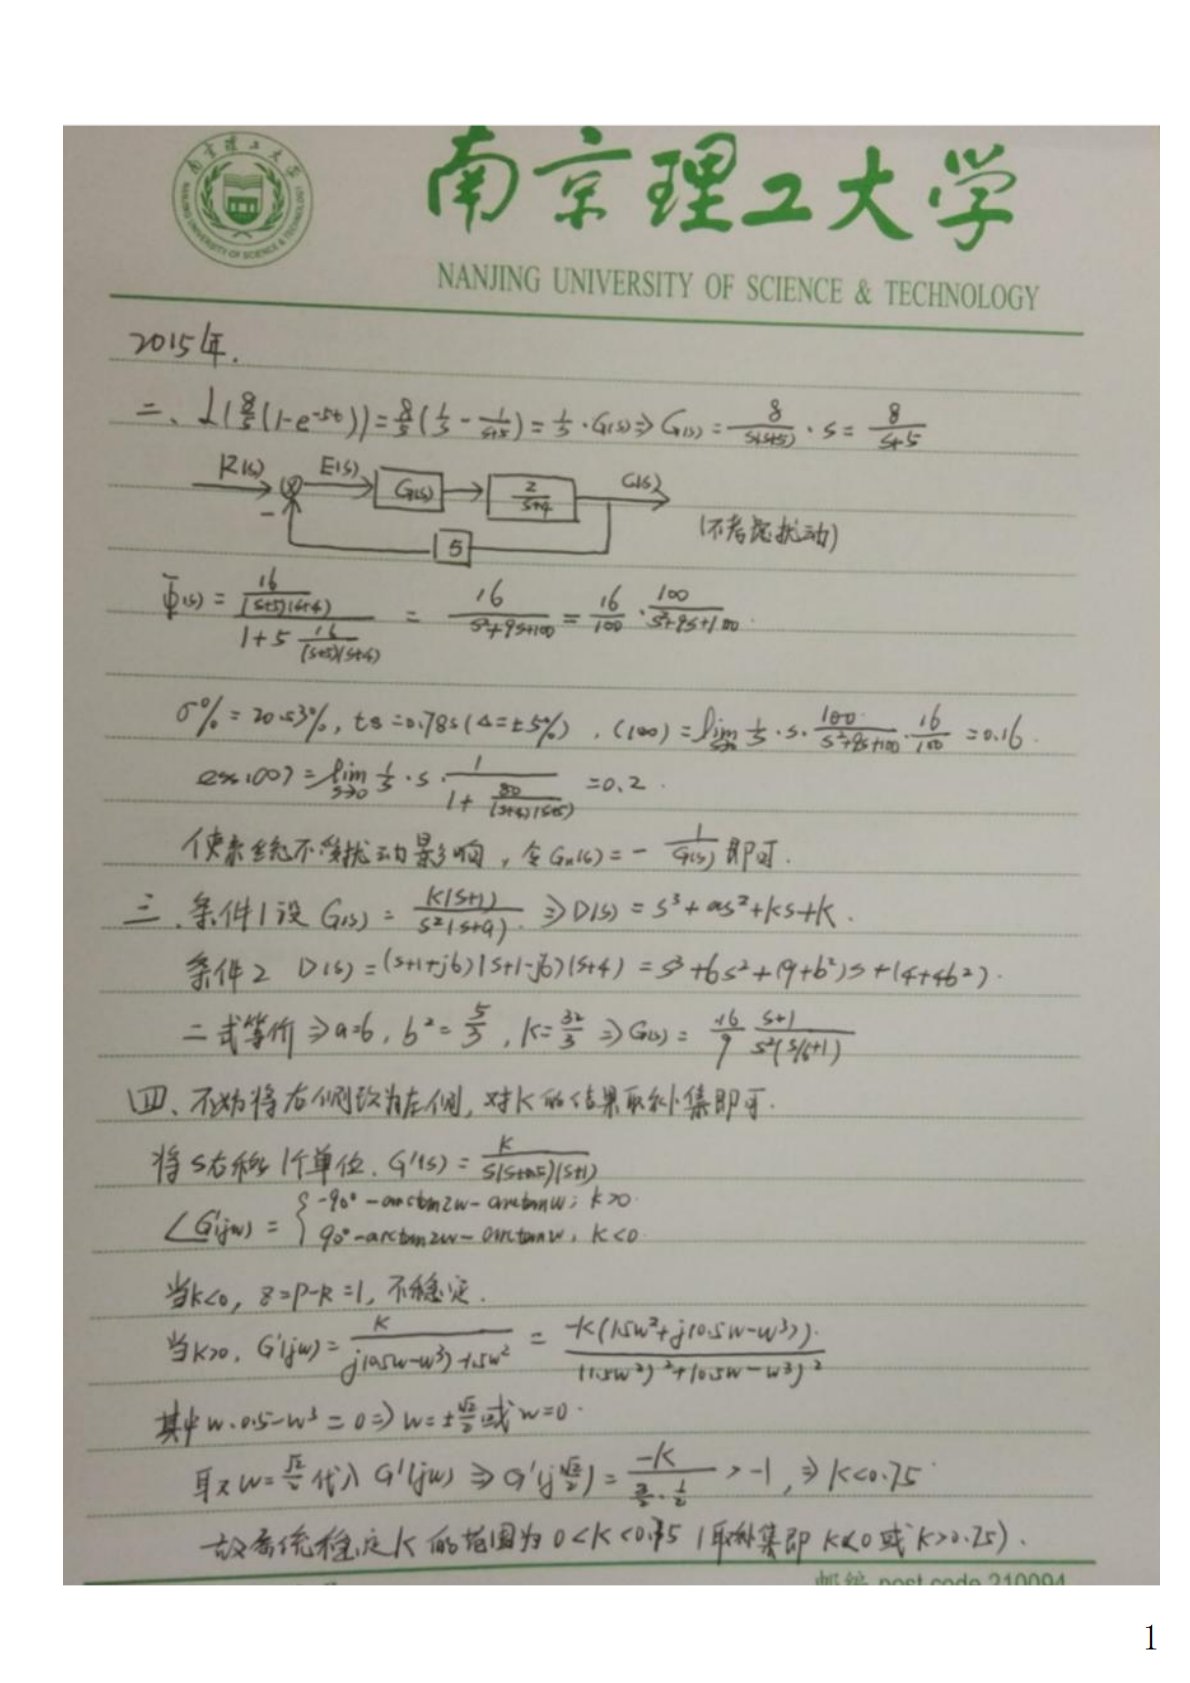 南京理工大学
NANJING UNIVERSITY OF SCIENCE & TECHNOLOGY
2015年.
二、L(8/5(1-e^-5t))=8/5(1/s - 1/(s+5))=1/s·G(s)⇒G(s)=8/(s(s+5))·s=8/(s+5)
R(s) E(s) G(s) 2/(s+4) C(s)
-
(不考虑扰动)
5
Φ(s)=(16/((s+5)(s+4)))/(1+5 16/((s+5)(s+4))) = 16/(s²+9s+100) = 16/100·100/(s²+9s+100)
σ%=20.53%, ts=0.78s(Δ=±5%), C(∞)=lim s→0 1/s·s·100/(s²+9s+100)·16/100=0.16.
ess(∞)=lim s→0 1/s·s·1/(1+80/((s+4)(s+5)))=0.2.
使系统不受扰动影响,令Gn(s)=-1/G(s)即可.
三.条件1设G(s)=K(s+1)/(s²(s+a))⇒D(s)=s³+as²+ks+k.
条件2 D(s)=(s+1+jb)(s+1-jb)(s+4)=s³+6s²+(9+b²)s+(4+4b²).
二式等价⇒a=6, b²=5/3, K=32/3⇒G(s)=16/9 (s+1)/(s²(s/6+1))
四、不妨将右侧改为左侧,对K的结果取补集即可.
将s右移1个单位. G'(s)=K/(s(s+0.5)(s+1))
∠G'(jw)={-90°-arctan2w-arctanw; k>0
90°-arctan2w-arctanw, k<0
当k<0, z=P-R=1,不稳定.
当k>0, G'(jw)=K/(j(0.5w-w³)-1.5w²)=-K(1.5w²+j(0.5w-w³))/((1.5w²)²+(0.5w-w³)²)
其中w·0.5-w³=0⇒w=±√2/2或w=0.
取w=√2/2代入G'(jw)⇒G'(j√2/2)=-K/(3/2·1/2)>-1,⇒K<0.75
故系统稳定K的范围为0<K<0.75(取补集即K≤0或K>0.75).
post code 210094
1